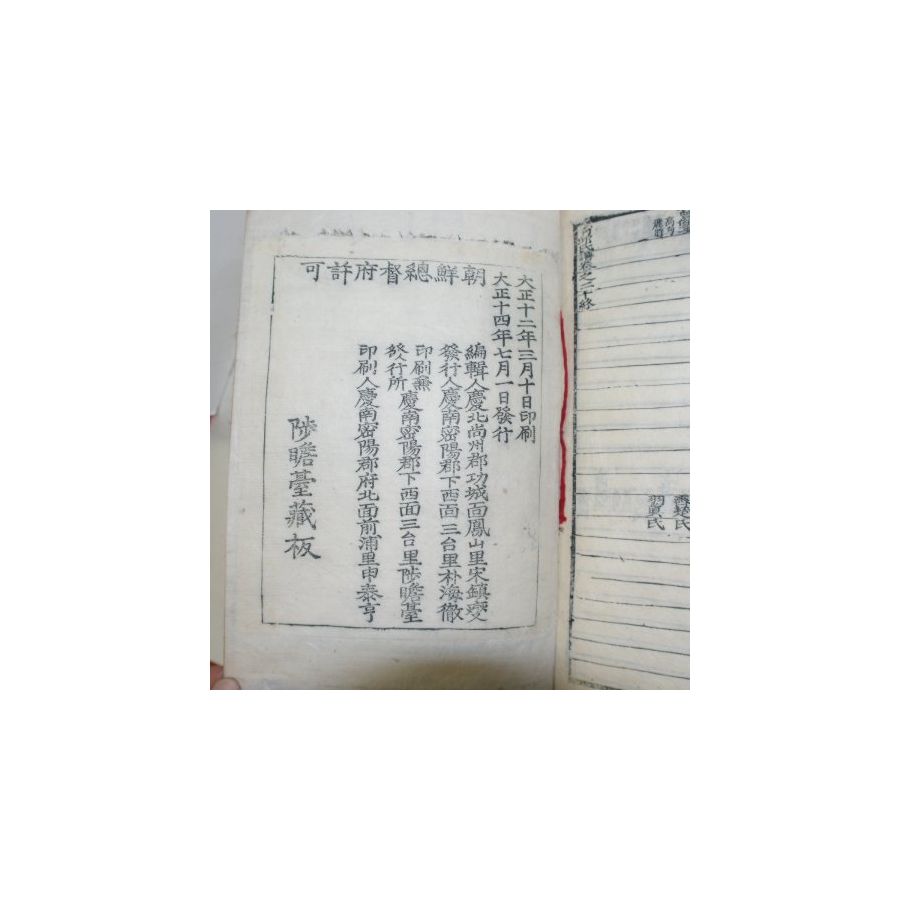 朝鮮總督府許可
大正十二年三月十日印刷
大正十四年七月一日發行
編輯人慶北尙州郡功城面鳳山里宋鎮燮
發行人慶南密陽郡下西面三台里朴海徹
印刷兼
發行所
慶南密陽郡下西面三台里陟瞻臺
印刷人慶南密陽郡府北面前浦里申泰亨
陟瞻臺藏板